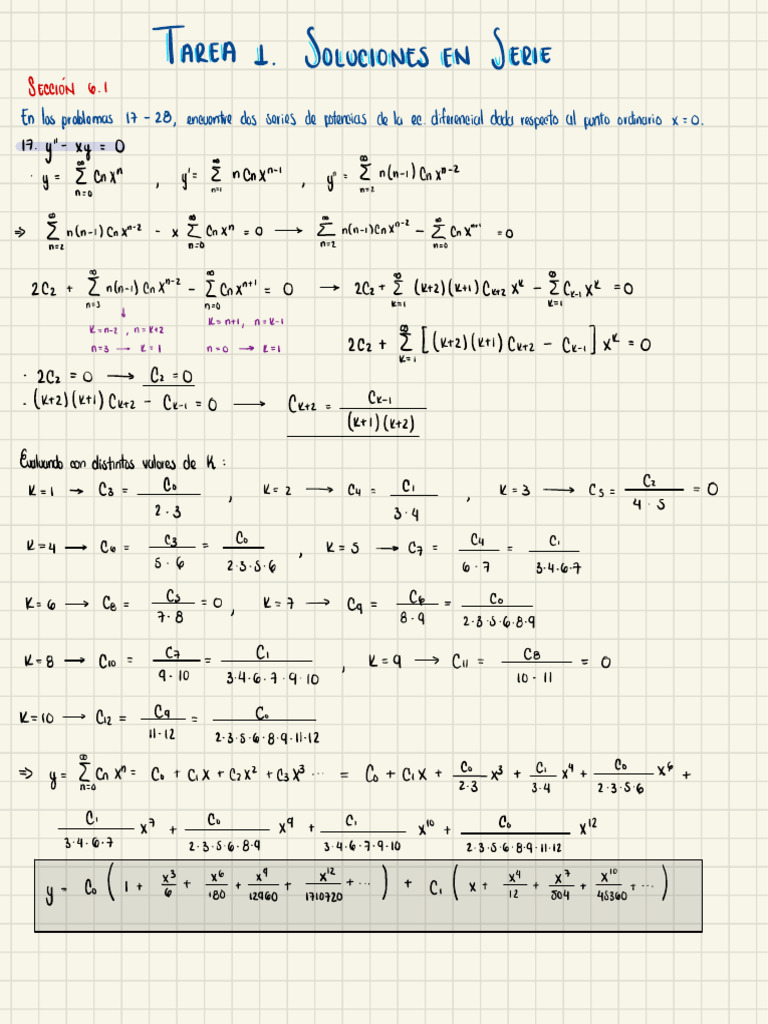 TAREA 1. SOLUCIONES EN SERIE
SECCIÓN 6.1
En los problemas 17 - 28, encuentre dos series de potencias de la ec. diferencial dada respecto al punto ordinario x = 0.
17. y'' - xy = 0
· y = ∞Σn=0 Cnxⁿ , y' = ∞Σn=1 nCnxⁿ⁻¹ , y'' = ∞Σn=2 n(n-1)Cnxⁿ⁻²
⇒ ∞Σn=2 n(n-1)Cnxⁿ⁻² - x ∞Σn=0 Cnxⁿ = 0 → ∞Σn=2 n(n-1)Cnxⁿ⁻² - ∞Σn=0 Cnxⁿ⁺¹ = 0
2C₂ + ∞Σn=3 n(n-1)Cnxⁿ⁻² - ∞Σn=0 Cnxⁿ⁺¹ = 0 → 2C₂ + ∞Σk=1 (k+2)(k+1)Ck+2 xᵏ - ∞Σk=1 Ck-1 xᵏ = 0
↓
K=n-2, n=k+2 K=n+1, n=k-1
n=3 → k=1 n=0 → k=1
2C₂ + ∞Σk=1 [(k+2)(k+1)Ck+2 - Ck-1] xᵏ = 0
· 2C₂ = 0 → C₂ = 0
· (k+2)(k+1)Ck+2 - Ck-1 = 0 → Ck+2 = Ck-1 / (k+1)(k+2)
Evaluando con distintos valores de K:
K=1 → C₃ = C₀ / 2·3 , K=2 → C₄ = C₁ / 3·4 , K=3 → C₅ = C₂ / 4·5 = 0
K=4 → C₆ = C₃ / 5·6 = C₀ / 2·3·5·6 , K=5 → C₇ = C₄ / 6·7 = C₁ / 3·4·6·7
K=6 → C₈ = C₅ / 7·8 = 0, K=7 → C₉ = C₆ / 8·9 = C₀ / 2·3·5·6·8·9
K=8 → C₁₀ = C₇ / 9·10 = C₁ / 3·4·6·7·9·10 , K=9 → C₁₁ = C₈ / 10·11 = 0
K=10 → C₁₂ = C₉ / 11·12 = C₀ / 2·3·5·6·8·9·11·12
⇒ y = ∞Σn=0 Cnxⁿ = C₀ + C₁x + C₂x² + C₃x³ ... = C₀ + C₁x + C₀ / 2·3 x³ + C₁ / 3·4 x⁴ + C₀ / 2·3·5·6 x⁶ +
C₁ / 3·4·6·7 x⁷ + C₀ / 2·3·5·6·8·9 x⁹ + C₁ / 3·4·6·7·9·10 x¹⁰ + C₀ / 2·3·5·6·8·9·11·12 x¹²
y = C₀ (1 + x³/6 + x⁶/180 + x⁹/12960 + x¹²/1710720 + ...) + C₁ (x + x⁴/12 + x⁷/504 + x¹⁰/45360 + ...)